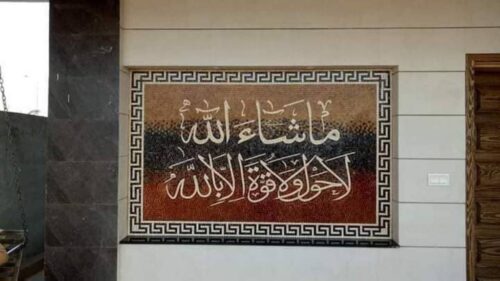 ما شاءَ الله
لا حول ولا قوة الا بالله